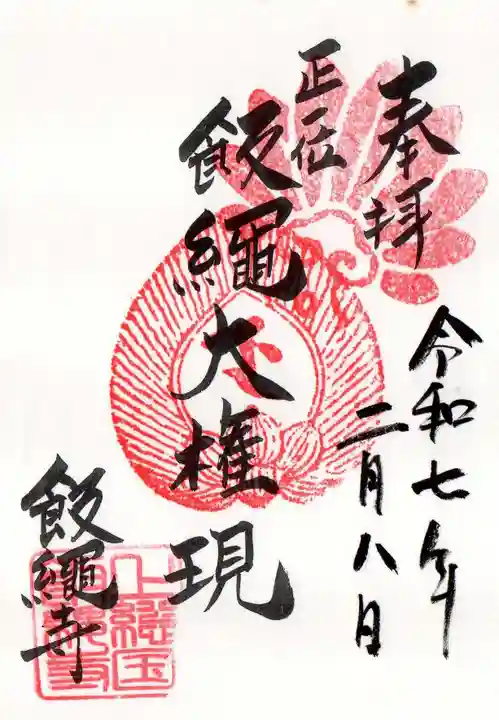 奉拝
令和七年
二月八日
正一位
飯縄大権現
飯縄寺
上総国